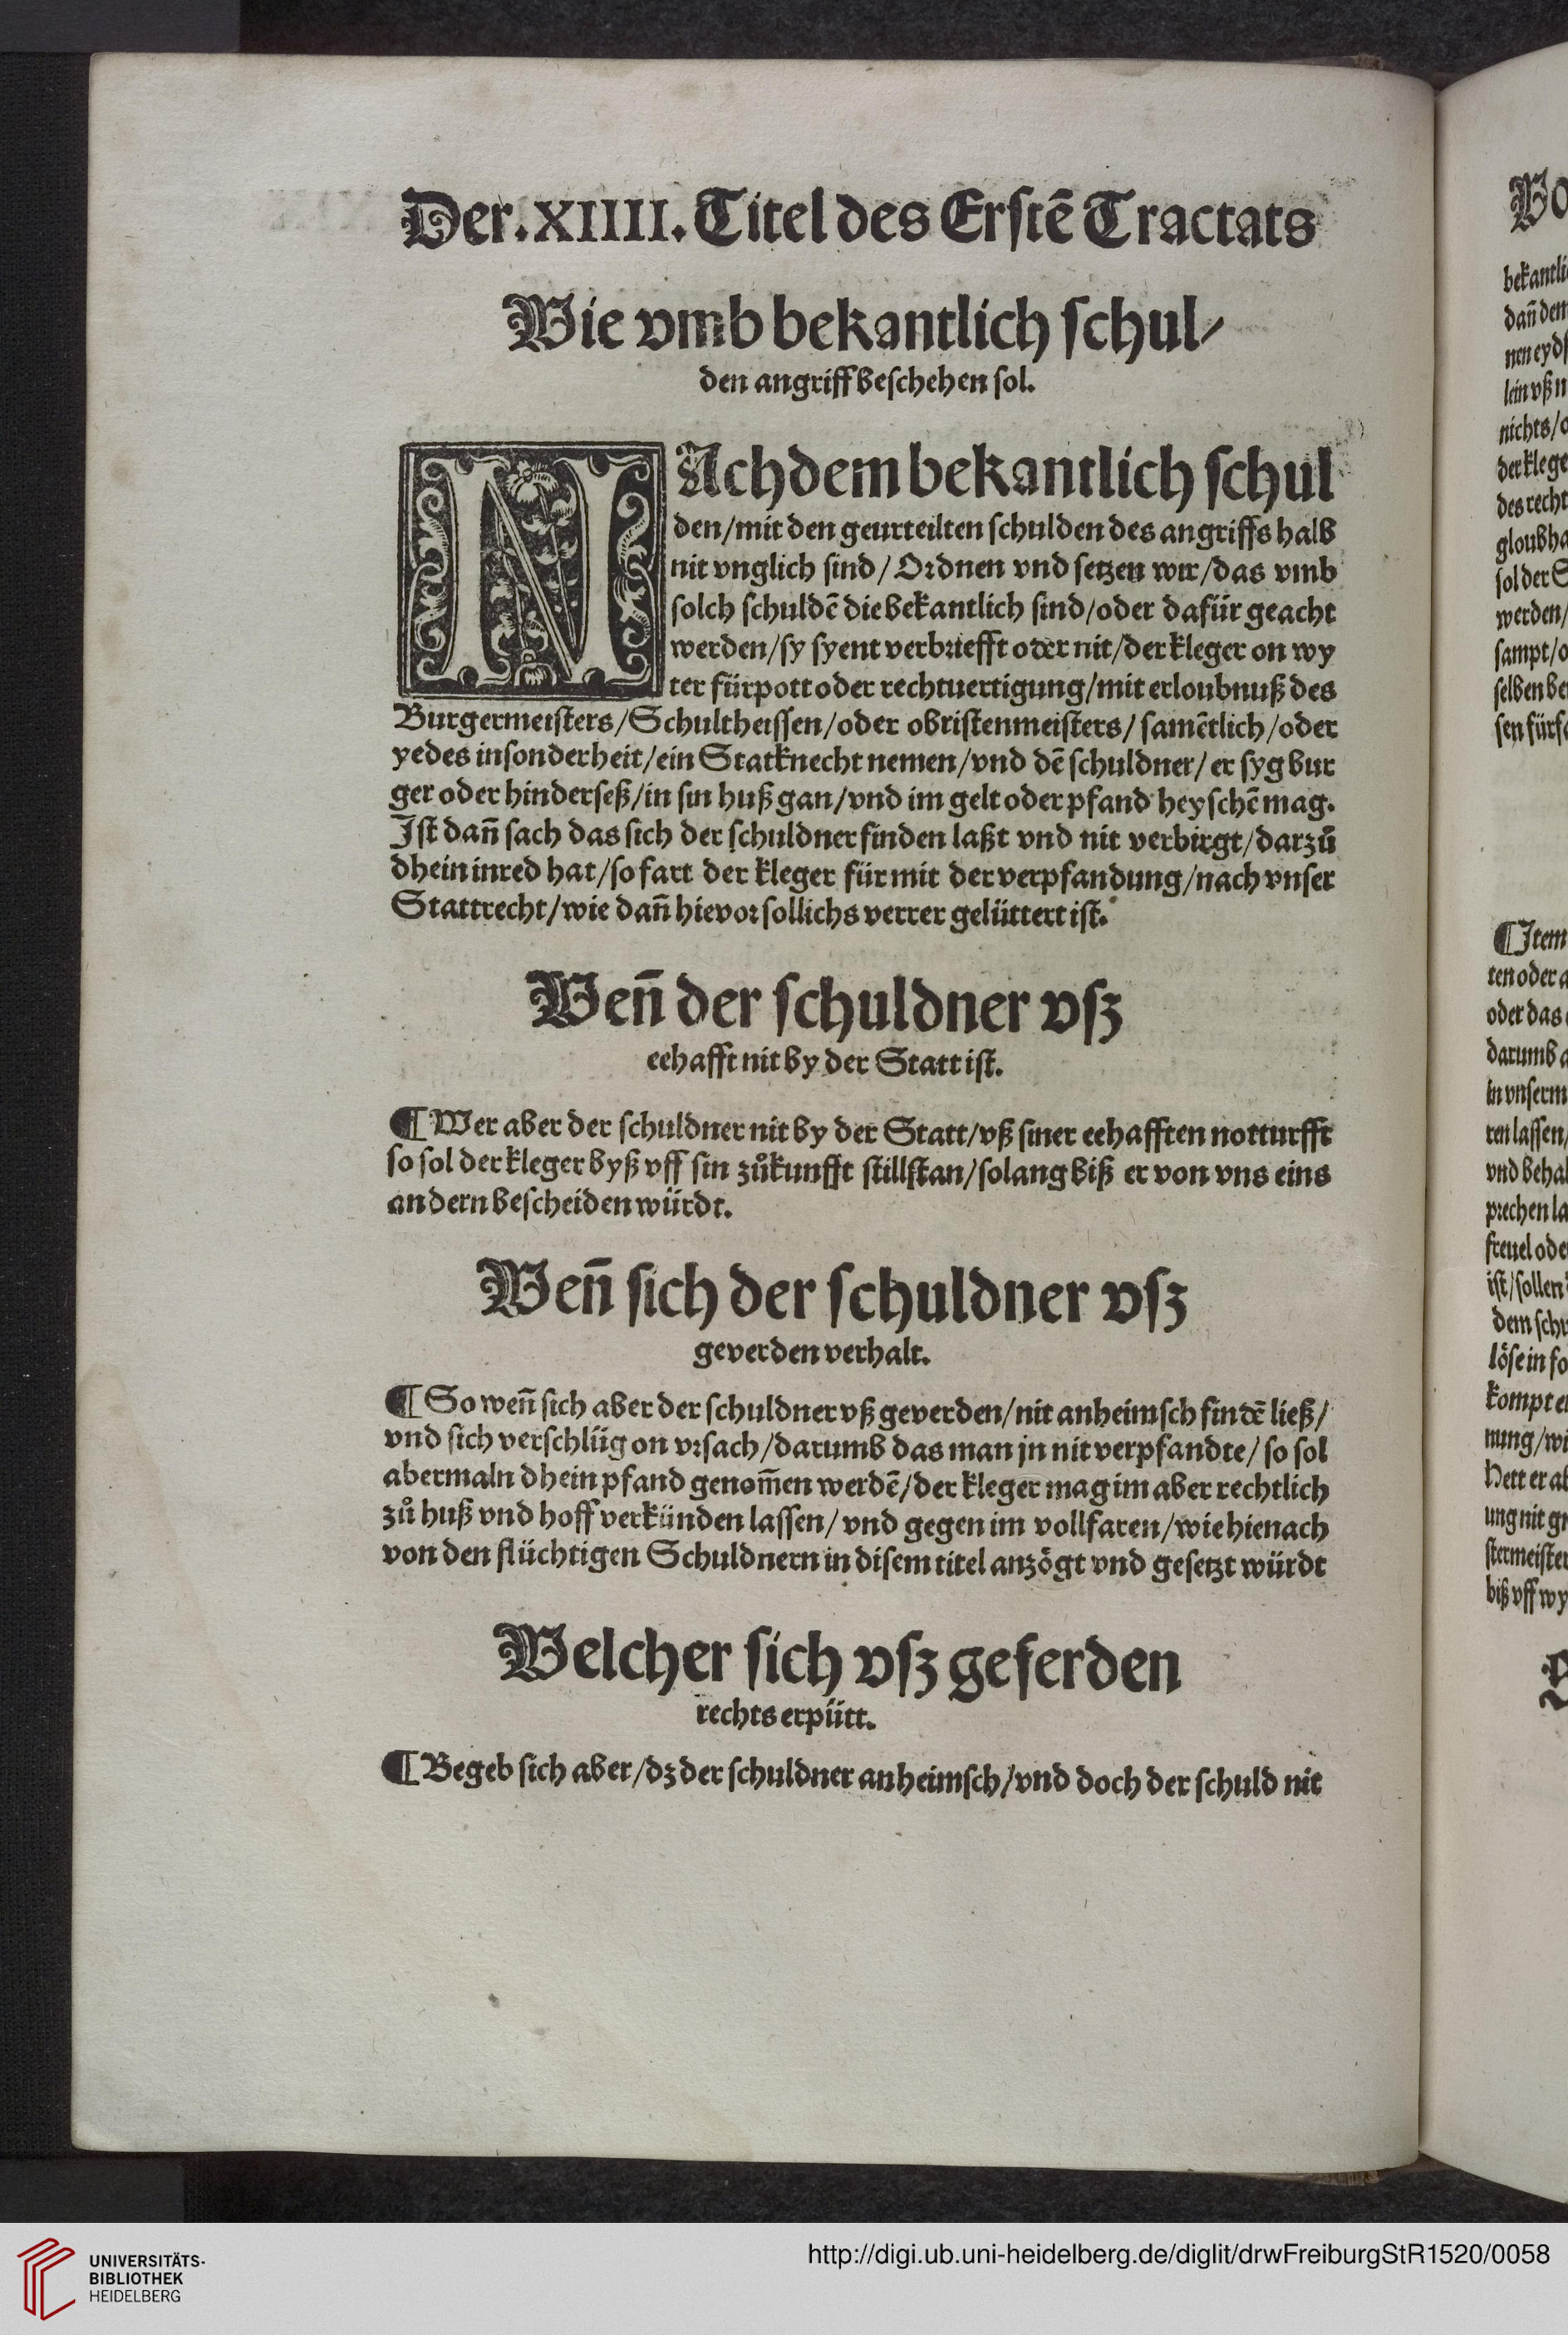 Der.XIIII.Titel des Erstẽ Tractats
Wie vmb bekantlich schul⸗
den angriff beschehen sol.
NAch dem bekantlich schul
den/mit den geurteilten schulden des angriffs halb
nit vnglich sind/Ordnen vnd setzen wir/das vmb
solch schuldẽ die bekantlich sind/oder dafür geacht
werden/sy syent verbriefft oder nit/der kleger on wy
ter fürpott oder rechtuertigung/mit erloubnuß des
Burgermeisters/Schultheissen/oder obristenmeisters/samẽtlich/oder
yedes insonderheit/ein Statknecht nemen/vnd dẽ schuldner/er syg bur
ger oder hinderseß/in sin huß gan/vnd im gelt oder pfand heyschẽ mag.
Ist dañ sach das sich der schuldner finden laßt vnd nit verbirgt/darzů
dhein inred hat/so fart der kleger für mit der verpfandung/nach vnser
Stattrecht/wie dañ hievor sollichs verrer gelüttert ist.
Weñ der schuldner vsz
eehafft nit by der Statt ist.
¶ Wer aber der schuldner nit by der Statt/vß siner eehafften notturfft
so sol der kleger byß vff sin zůkunfft stillstan/solang biß er von vns eins
andern bescheiden würdt.
Weñ sich der schuldner vsz
geverden verhalt.
¶ So weñ sich aber der schuldner vß geverden/nit anheimsch findẽ ließ/
vnd sich verschlüg on vrsach/darumb das man jn nit verpfandte/so sol
abermaln dhein pfand genom̃en werdẽ/der kleger mag im aber rechtlich
zů huß vnd hoff verkünden lassen/vnd gegen im vollfaren/wie hienach
von den flüchtigen Schuldnern in disem titel anzögt vnd gesetzt würdt
Welcher sich vsz geferden
rechts erpütt.
¶ Begeb sich aber/dz der schuldner anheimsch/vnd doch der schuld nit
bekantli
dañ dem
nen eyds
lein vß n
nichts/o
der klege
des recht
gloubha
sol der S
werden/
sampt/o
selben be
sen fürs
¶ Item
ten oder a
oder das
darumb a
in vnserm
ren lassen/
vnd behal
prechen la
freuel ode
ist/sollen
dem schu
löse in so
kompt er
nung/wi
Hett er ab
ung nit gr
stermeister
biß vff wy
UNIVERSITÄTS-
BIBLIOTHEK
HEIDELBERG
http://digi.ub.uni-heidelberg.de/diglit/drwFreiburgStR1520/0058